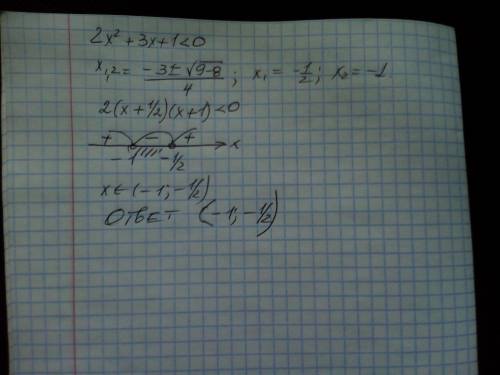 2x² + 3x + 1 < 0
x₁,₂ = (-3 ± √(9-8))/4 ; x₁ = -1/2 ; x₂ = -1
2(x + 1/2)(x + 1) < 0
+ - + x
-1 -1/2
x ∈ (-1; -1/2)
ОТВЕТ (-1; -1/2)